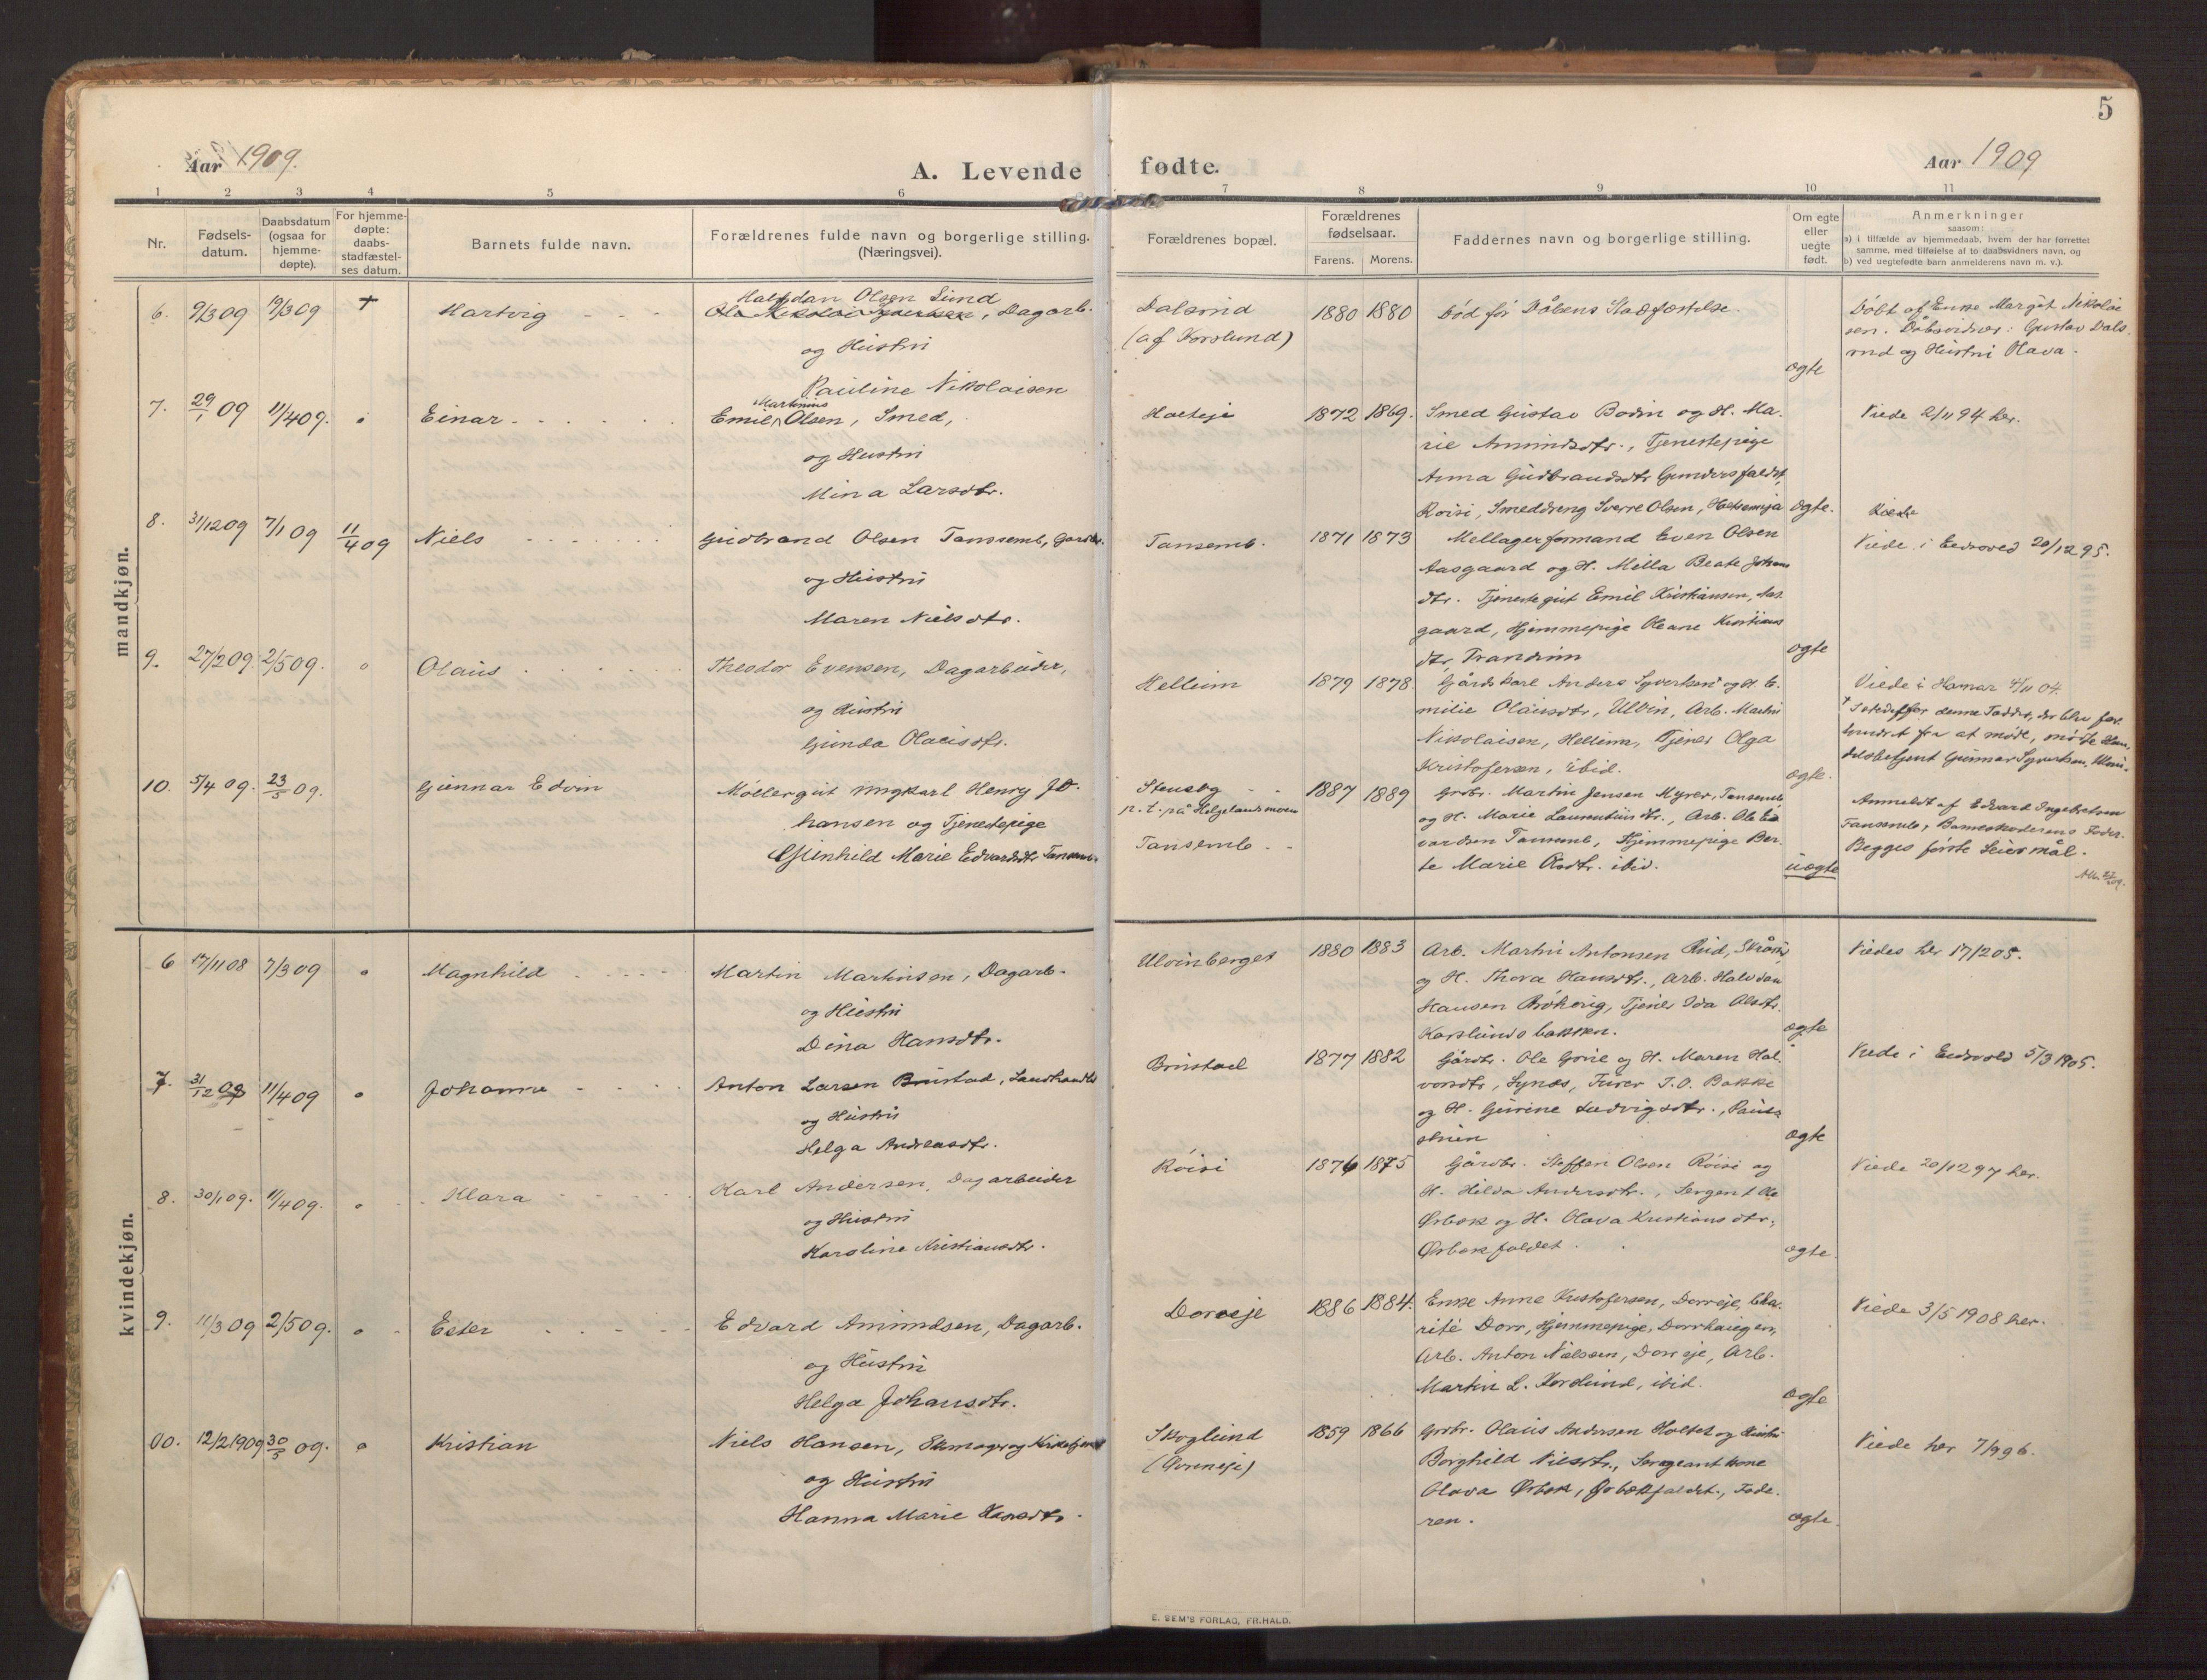 5
Aar 1909.
A. Levende fødte.
Aar 1909
1 2 3 4 5 6 7 8 9 10 11
Nr.
Fødsels-
datum.
Daabsdatum
(ogsaa for
hjemme-
døpte).
For hjemme-
døpte:
daabs-
stadfæstel-
ses datum.
Barnets fulde navn.
Forældrenes fulde navn og borgerlige stilling.
(Næringsvei).
Forældrenes bopæl.
Forældrenes
fødselsaar.
Farens. Morens.
Faddernes navn og borgerlige stilling.
Om egte
eller
uegte
født.
Anmerkninger
saasom:
a) i tilfælde av hjemmedaab, hvem der har forrettet
samme, med tilføielse af to daabsvidners navn, og
b) ved uegtefødte barn anmelderens navn m. v.).
mandkjøn.
6. 9/3 09 19/3 09 +
Hartvig
Halfdan Olsen Lund
Dagarb.
og Hustru
Pauline Nikolaisen
Dalsrud
(af Korslund)
1880 1880
Død før Dåbens Stadfæstelse.
ægte
Døbt af Enke Margit Nikolai
sen. Dåbsvidner: Gustav Dals
rud og Hustru Olava.
7. 29/1 09 11/4 09.
Einar
Martinius
Emil Olsen, Smed,
og Hustru
Mina Larsdtr.
Holteje
1872 1869.
Smed Gustav Bodin og H. Ma-
rie Amundsdtr., Tjenestepige
Anna Gudbrandsdtr Gundersfaldet,
Roisi, Smeddreng Sverre Olsen,
ægte.
Viede 2/11 94 her.
8. 31/12 09 7/1 09 11/4 09
Niels
Gudbrand Olsen Tansemb, Gardbr.
og Hustru
Maren Nielsdtr.
Tansemb.
1871 1873
Mellagerformand Even Olsen
Aasgaard og H. Milla Beate Johans
dtr. Tjenestegut Emil Kristiansen, Aas
gaard, Hjemmepige Oleane Kristians
dtr, Trandum
ægte
Viede i Eidsvold 20/12 95.
9. 27/2 09. 2/5 09.
Olaus
Theodor Evensen, Dagarbeider,
og Hustru
Gunda Olausdtr.
Hellum
1879 1878
Gårdskarl Anders Syvertsen og H. E-
milie Olausdtr, Ulvin, Arb. Martin
Nikolaisen, Hellum, Tjener Olga
Kristofersen, ibid.
ægte.
Viede i Hamar 4/11 04.
Istedetfor denne Fadder, der blev for
hindret fra at møde, mødte Han-
delsbetjent Gunnar Syvertsen,
10. 5/4 09. 23/5 09.
Gunnar Edvin
Møllergut ungkarl Henry Jo-
hansen og Tjenestepige
Gunhild Marie Edvardsdtr Tansemb
Stensby
p. t. på Helgelandsmoen
Tansemb
1887 1889
Grbr. Martin Jensen Myrer, Tansemb
og H. Marie Laurentiusdtr., Arb. Ole Ed
vardsen Tansemb, Hjemmepige Ber-
te Marie Olsdtr. ibid.
uægte
Anmeldt af Edvard Ingebretsen
Tansemb, Barnemoderens Fader.
Begges første Leiermål.
kvindekjøn.
6 17/11 08 7/3 09
Magnhild
Martin Martinsen, Dagarb.
og Hustru
Dina Hansdtr.
Ulvinberget
1880 1883
Arb. Martin Antonsen Rud,
og H. Thova Hansdtr., Arb. Halvdan
Hansen Brøkerig, Tjener Ida Olsdtr.
Korslundsbakken.
ægte
Viedes her 17/2 05.
7. 31/12 08 11/4 09
Johanne
Anton Larsen Brustad, Landhandler
og Hustru
Helga Andreasdtr.
Brustad
1877 1882
Gårdbr. Ole Gorie og H. Maren Hal-
vorsdtr, Synæs, Furer J.O. Bakke
og H. Gurine Ludvigsdtr.,
ægte
Viede i Eidsvold 5/3 1905.
8. 30/1 09. 11/4 09.
Klara
Karl Andersen, Dagarbeider
og Hustru
Karoline Kristiansdtr.
Røisi
1876 1875
Gårdbr. Steffen Olsen Røisi og
H. Hilda Andersdtr., Sergent Ole
Ørbæk og H. Olava Kristiansdtr,
Ørbækfaldet.
ægte.
Viede 20/12 97 her.
9. 11/3 09 2/5 09.
Ester
Edvard Amundsen, Dagarb.
og Hustru
Helga Johansdtr.
Dorreje
1886 1884.
Enke Anne Kristofersen, Dorreje, Cha-
rité Dorr, Hjemmepige, Dorrhaugen,
Arb. Anton Nielsen, Dorreje, Arb.
Martin L. Korslund, ibid.
ægte
Viede 3/5 1908 her.
10. 12/2 1909 30/5 09.
Kristian
Niels Hansen, Skomager og Kirketjener
og Hustru
Hanna Marie Hansdtr.
Skoglund
(Ovreneje)
1859 1866
Grbr. Olaus Andersen Holtet og Hustru
Borghild Nilsdtr., Sergeantkone
Olava Ørbæk, Ørbækfaldet, Fade-
ren.
ægte.
Viede her 7/9 96.
E. SEM'S FORLAG, FR.HALD.